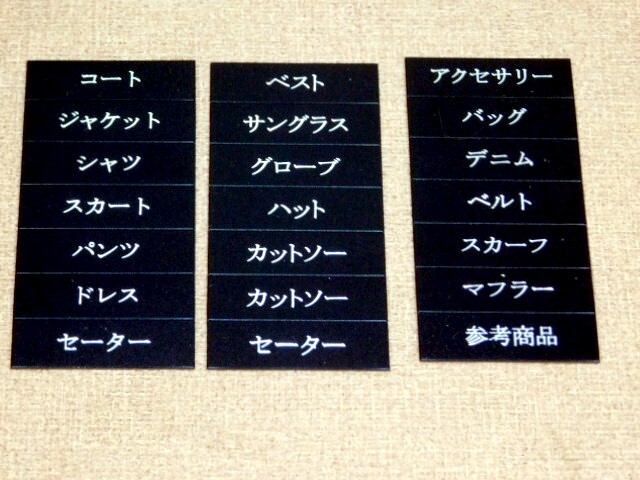 コート
ジャケット
シャツ
スカート
パンツ
ドレス
セーター
ベスト
サングラス
グローブ
ハット
カットソー
カットソー
セーター
アクセサリー
バッグ
デニム
ベルト
スカーフ
マフラー
参考商品